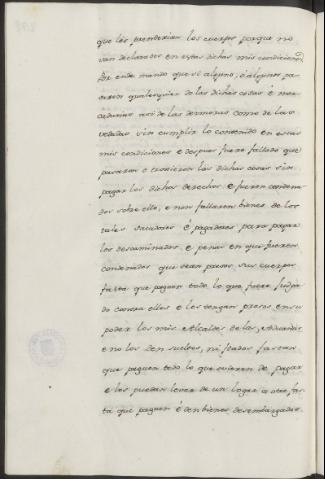 que les prenderian los cuerpos porque no
van declarados en estas dichas mis condiciones
Por ende mando que si alguno, ó algunos pa
saren qualesquier de las dichas cosas é mer
cadurias asi de las dezmeras como de las
vedadas sin cumplir lo contenido en estas
mis condiciones e despues fuere fallado que
pasaron o troxieron las dichas cosas sin
pagar los dichos derechos e fueren condena
dos sobre ello, e non fallaren bienes de los
tales sacadores é pagadores para pagar
los descaminados, e penas en que fueren
condenados que sean presos sus cuerpos
fasta que paguen todo lo que fuere juzga
do contra ellos e les tengan presos en su
poder los mis Alcaldes de las Aduanas
e no los den sueltos, ni fiados fasta
que paguen todo lo que ovieren de pagar
e los puedan levar de un logar a otro fas
ta que paguen é den bienes desembargados